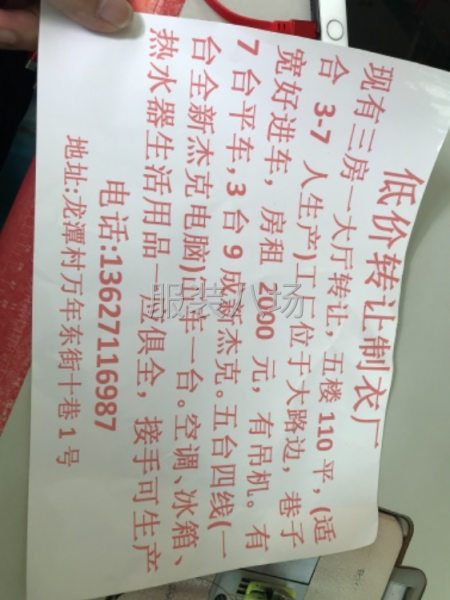 低价转让制衣厂
现有三房一大厅转让，五楼 110 平，(适
合 3-7 人生产)工厂位于大路边，巷子
宽好进车，房租 元，有吊机。有
7 台平车,3 台 9 成新杰克。五台四线(一
台全新杰克电脑) 车一台。空调、冰箱、
热水器生活用品一应俱全，接手可生产
电话:13627116987
地址:龙潭村万年东街十巷 1 号
服装八场